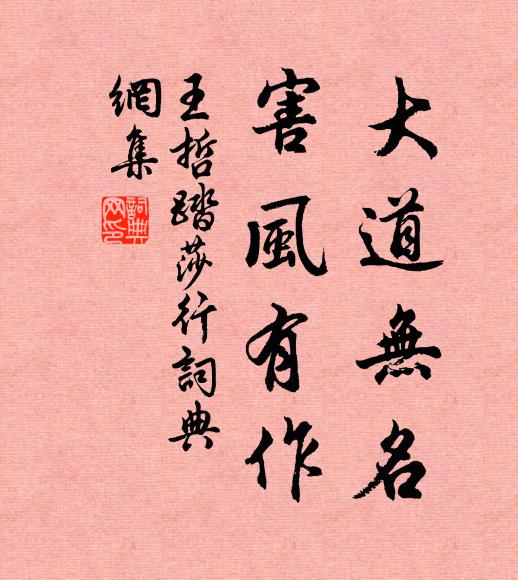 大道無名
害風有作
王哲踏莎行詞典
網集
詞典
网印